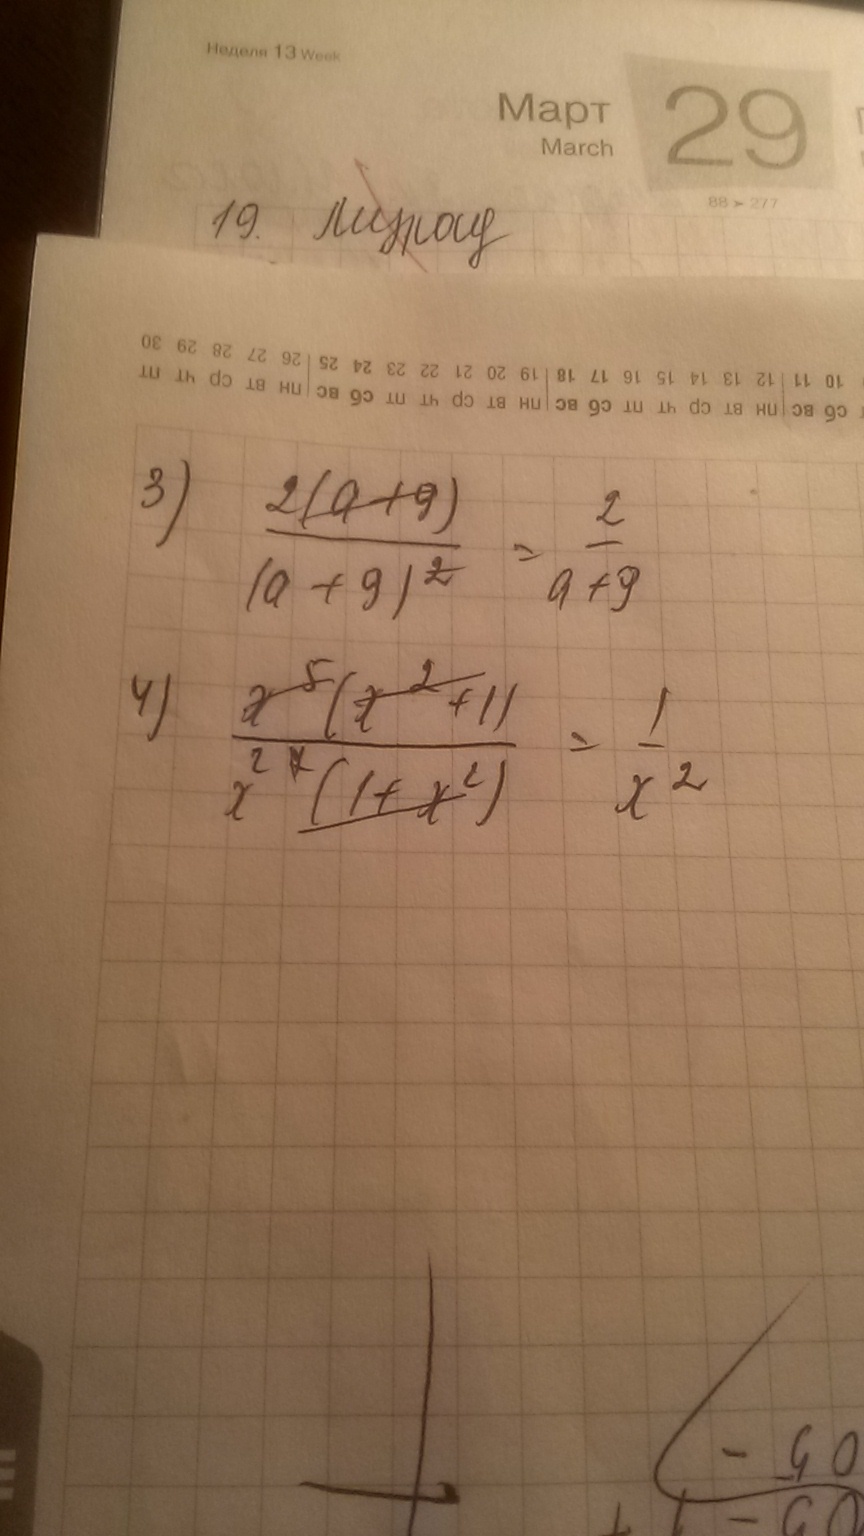 Неделя 13 Week
Март 29
March
88 > 277
19.
30 29 28 27 26 25 24 23 22 21 20 19 18 17 16 15 14 13 12 11 10
пт чт ср вт пн вс сб пт чт ср вт пн вс сб пт чт ср вт пн вс сб
3) 2(a+9) / (a+9)^2 = 2 / a+9
4) x^5(x^2+1) / x^2 7(1+x^2) = 1 / x^2